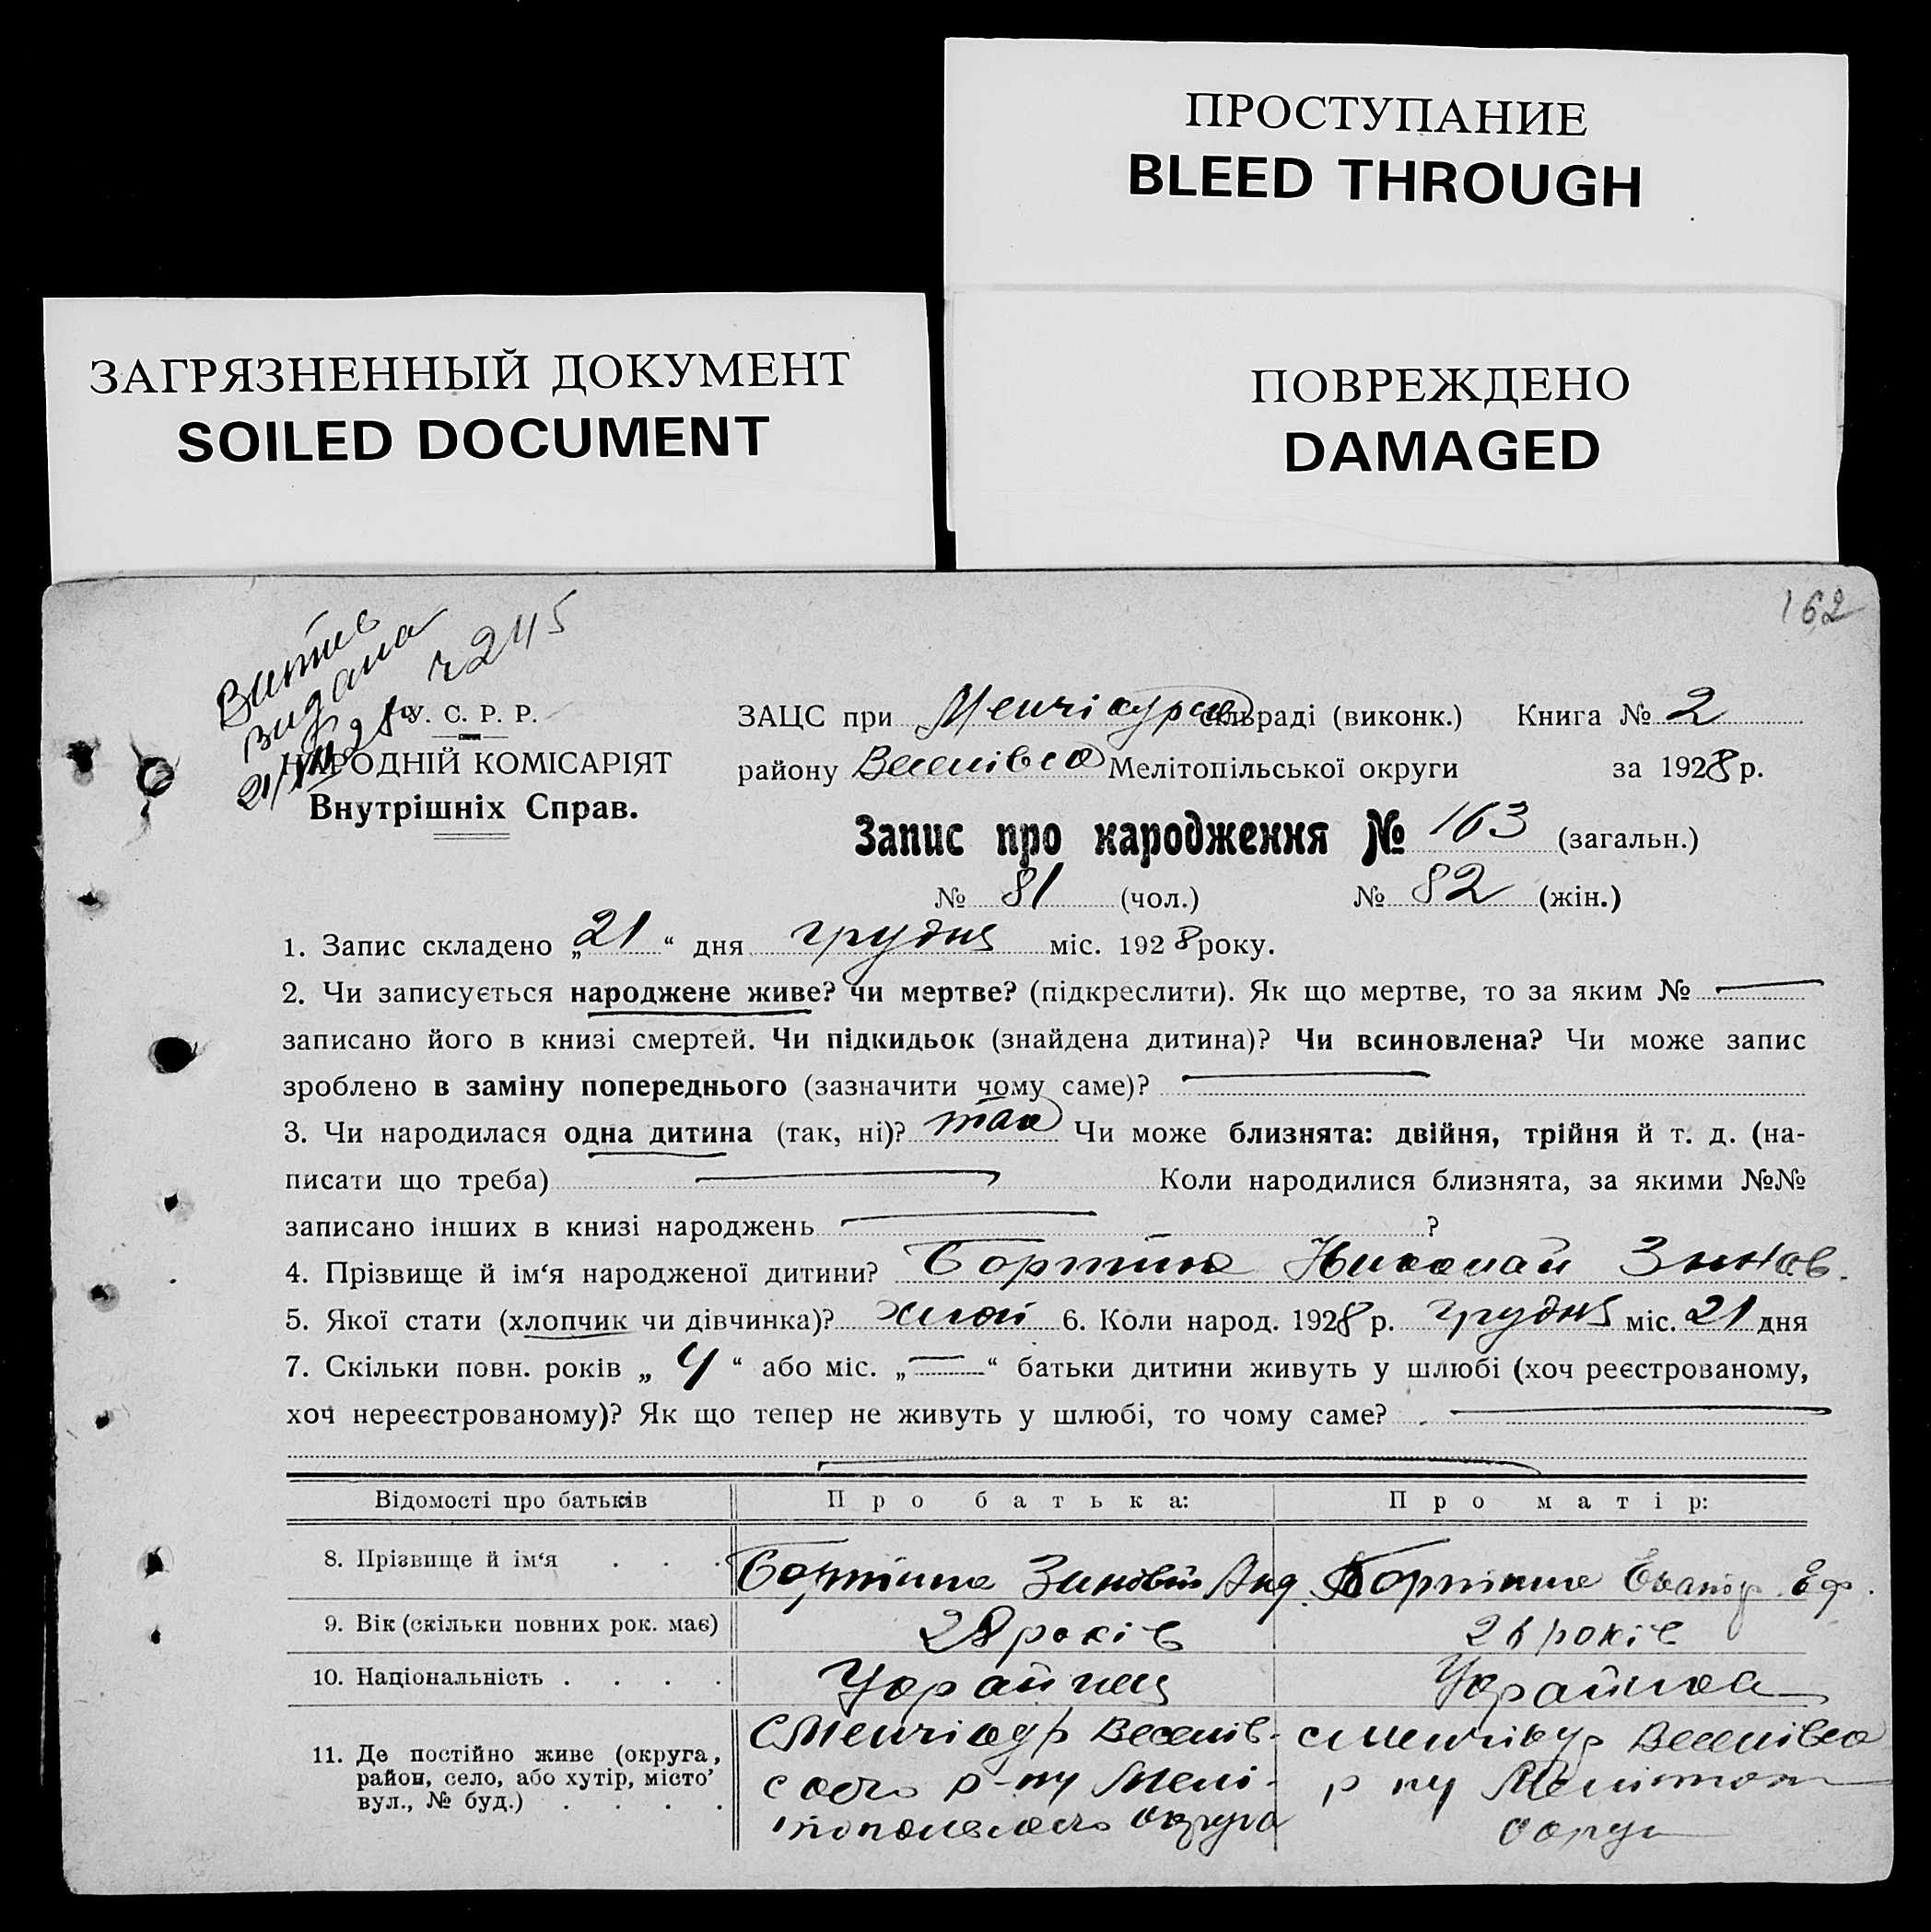 ПРОСТУПАНИЕ
BLEED THROUGH
ЗАГРЯЗНЕННЫЙ ДОКУМЕНТ
SOILED DOCUMENT
ПОВРЕЖДЕНО
DAMAGED
162
Витяг
видано
ч 245
21/XII 28
У. С. Р. Р.
НАРОДНІЙ КОМІСАРІЯТ
Внутрішніх Справ.
ЗАЦС при Менчікурск сільраді (виконк.) Книга № 2
району Веселівсо Мелітопільської округи за 1928 р.
Запис про народження № 163 (загальн.)
№ 81 (чол.) № 82 (жін.)
1. Запис складено „21“ дня грудня міс. 1928 року.
2. Чи записується народжене живе? чи мертве? (підкреслити). Як що мертве, то за яким №
записано його в книзі смертей. Чи підкидьок (знайдена дитина)? Чи всиновлена? Чи може запис
зроблено в заміну попереднього (зазначити чому саме)?
3. Чи народилася одна дитина (так, ні)? так Чи може близнята: двійня, трійня й т. д. (на-
писати що треба) Коли народилися близнята, за якими №№
записано інших в книзі народжень ?
4. Прізвище й ім‘я народженої дитини? Николай Зинов.
5. Якої стати (хлопчик чи дівчинка)? 6. Коли народ. 1928 р. грудня міс. 21 дня
7. Скільки повн. років „4“ або міс. „—“ батьки дитини живуть у шлюбі (хоч реєстрованому,
хоч нереєстрованому)? Як що тепер не живуть у шлюбі, то чому саме?
Відомості про батьків Про батька: Про матір:
8. Прізвище й ім‘я . . . Зиновій Анд. Еф.
9. Вік (скільки повних рок. має) 28 років 26 років
10. Національність . . . . Українец Українка
11. Де постійно живе (округа,
район, село, або хутір, місто’
вул., № буд.) . . . .
с Менчікур Веселів-
ського р-ну Мелі-
топольського округа
с Менчікур Веселівсо
р ну Мелітоп
округ